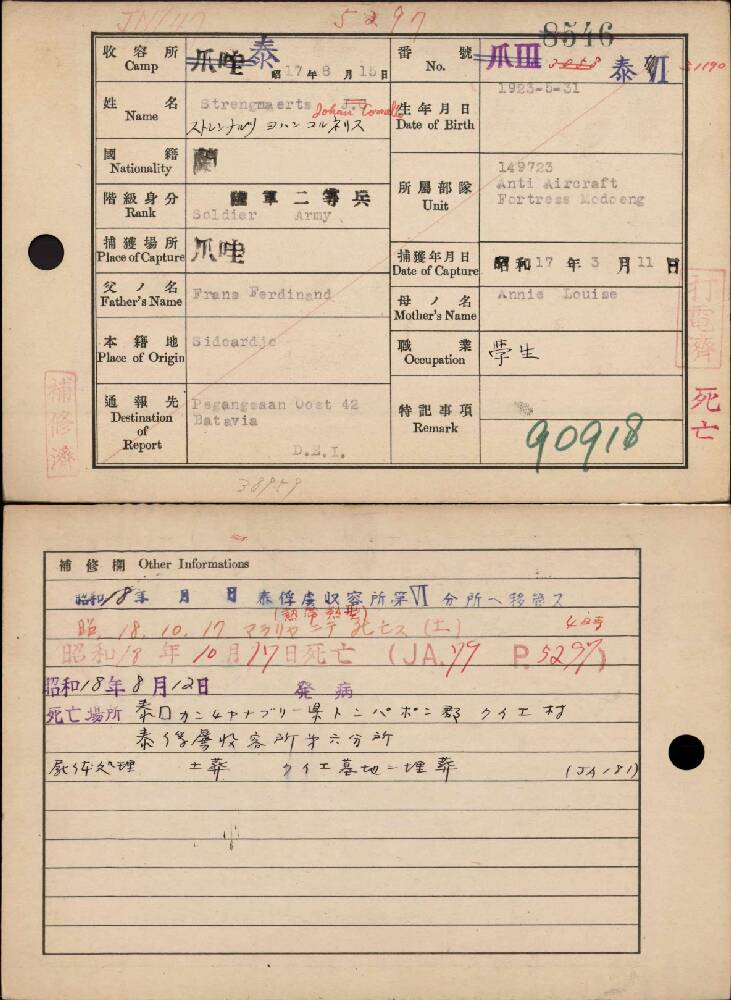 JN/47
5297
8546
收容所
Camp
爪哇 泰
昭17年8月15日
番號
No.
爪III
泰VI
51190
姓名
Name
Strengnaerts J.C
Johan Cornelis
ヨハン コルネリス
生年月日
Date of Birth
1923-5-31
國籍
Nationality
蘭
階級身分
Rank
陸軍二等兵
Soldier Army
所屬部隊
Unit
149723
Anti Aircraft
Fortress Modoeng
捕獲場所
Place of Capture
爪哇
捕獲年月日
Date of Capture
昭和17年3月11日
父ノ名
Father's Name
Frans Ferdinand
母ノ名
Mother's Name
Annie Louise
本籍地
Place of Origin
Sidoardjo
職業
Occupation
學生
通報先
Destination of Report
Pegangsaan Oost 42
Batavia
D.E.I.
特記事項
Remark
90918
打電濟
死亡
補修濟
38959
補修欄 Other Informations
昭和18年 月 日 泰俘虜収容所第VI分所ヘ移管ス
(熱帯熱型)
昭.18.10.17 マラリヤニテ死亡ス(土)
昭和18年10月17日死亡 (JA.79 P.5297)
昭和18年8月12日 発病
死亡場所 泰国カンチヤナブリー県トンパポン郡クイエ村
泰俘虜収容所第六分所
屍体処理 土葬 クイエ墓地ニ埋葬 (JA 181)